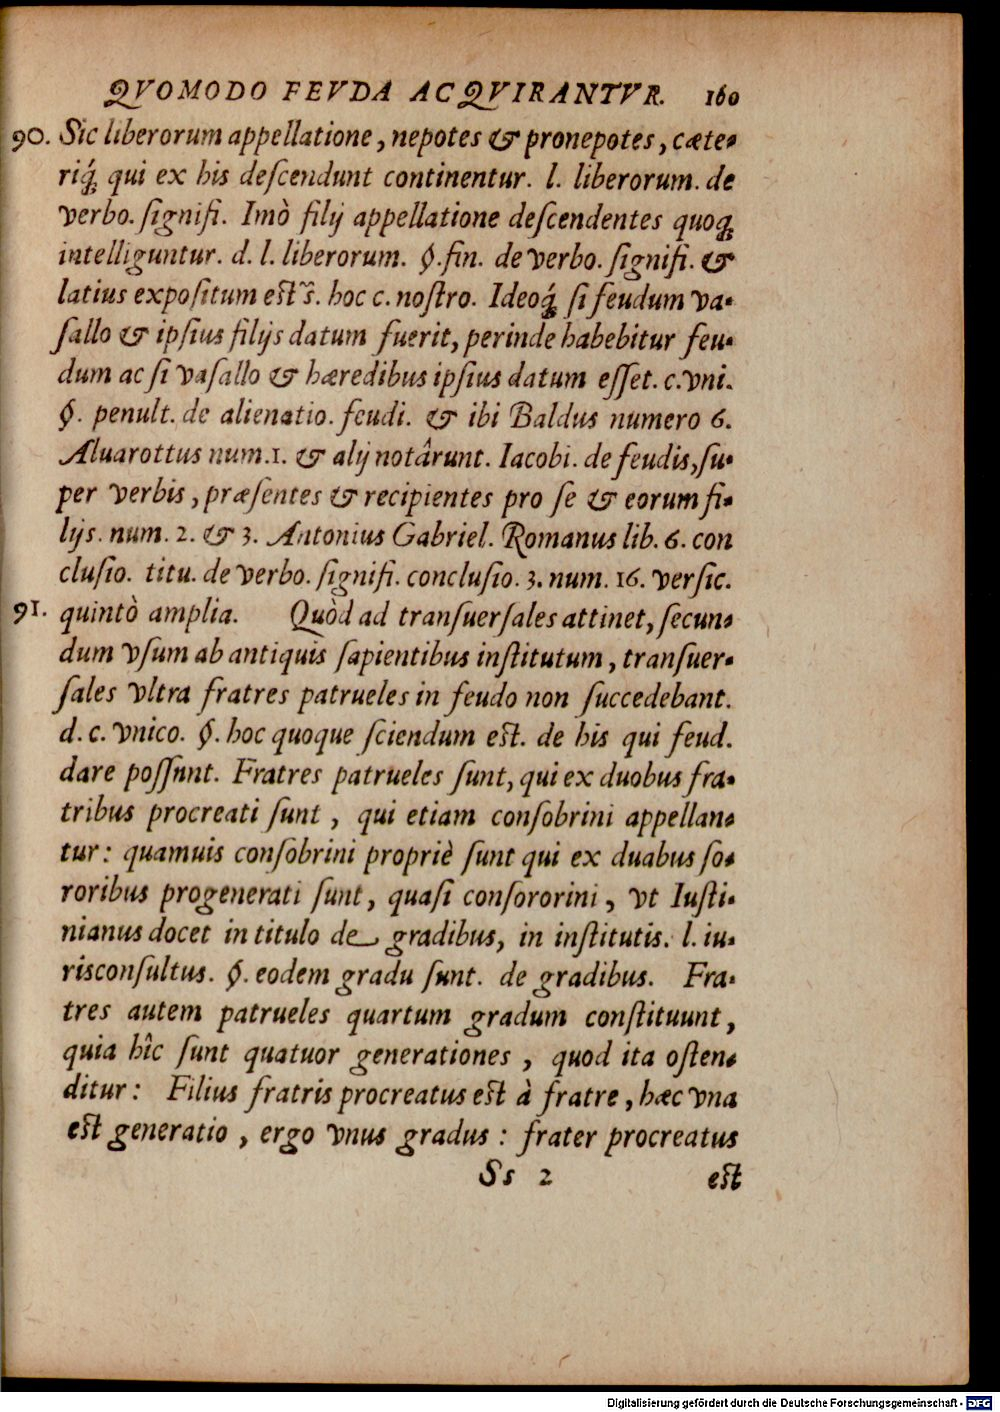 QVOMODO FEVDA ACQVIRANTVR. 160
90. Sic liberorum appellatione, nepotes & pronepotes, cæte-
riq́; qui ex his deſcendunt continentur. l. liberorum. de
verbo. ſignifi. Imò filij appellatione deſcendentes quoq;
intelliguntur. d. l. liberorum. §. fin. de verbo. ſignifi. &
latius expoſitum eſt s̃. hoc c. noſtro. Ideoq́; ſi feudum va-
ſallo & ipſius filijs datum fuerit, perinde habebitur feu-
dum ac ſi vaſallo & hæredibus ipſius datum eſſet. c. vni.
§. penult. de alienatio. feudi. & ibi Baldus numero 6.
Aluarottus num. 1. & alij notârunt. Iacobi. de feudis, ſu-
per verbis, præſentes & recipientes pro ſe & eorum fi-
lijs. num. 2. & 3. Antonius Gabriel. Romanus lib. 6. con
cluſio. titu. de verbo. ſignifi. concluſio. 3. num. 16. verſic.
91. quintò amplia. Quòd ad tranſuerſales attinet, ſecun-
dum vſum ab antiquis ſapientibus inſtitutum, tranſuer-
ſales vltra fratres patrueles in feudo non ſuccedebant.
d. c. vnico. §. hoc quoque ſciendum eſt. de his qui feud.
dare poſſunt. Fratres patrueles ſunt, qui ex duobus fra-
tribus procreati ſunt, qui etiam conſobrini appellan-
tur: quamuis conſobrini propriè ſunt qui ex duabus ſo-
roribus progenerati ſunt, quaſi conſororini, vt Iuſti-
nianus docet in titulo de gradibus, in inſtitutis. l. iu-
risconſultus. §. eodem gradu ſunt. de gradibus. Fra-
tres autem patrueles quartum gradum conſtituunt,
quia hîc ſunt quatuor generationes, quod ita oſten-
ditur: Filius fratris procreatus eſt à fratre, hæc vna
eſt generatio, ergo vnus gradus: frater procreatus
Ss 2 eſt
Digitalisierung gefördert durch die Deutsche Forschungsgemeinschaft - DFG